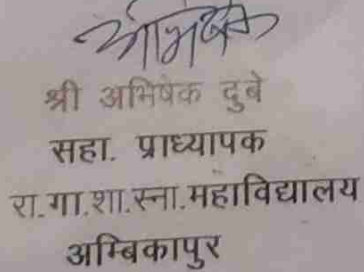 अभिषेक
श्री अभिषेक दुबे
सहा. प्राध्यापक
रा.गा.शा.स्ना.महाविद्यालय
अम्बिकापुर